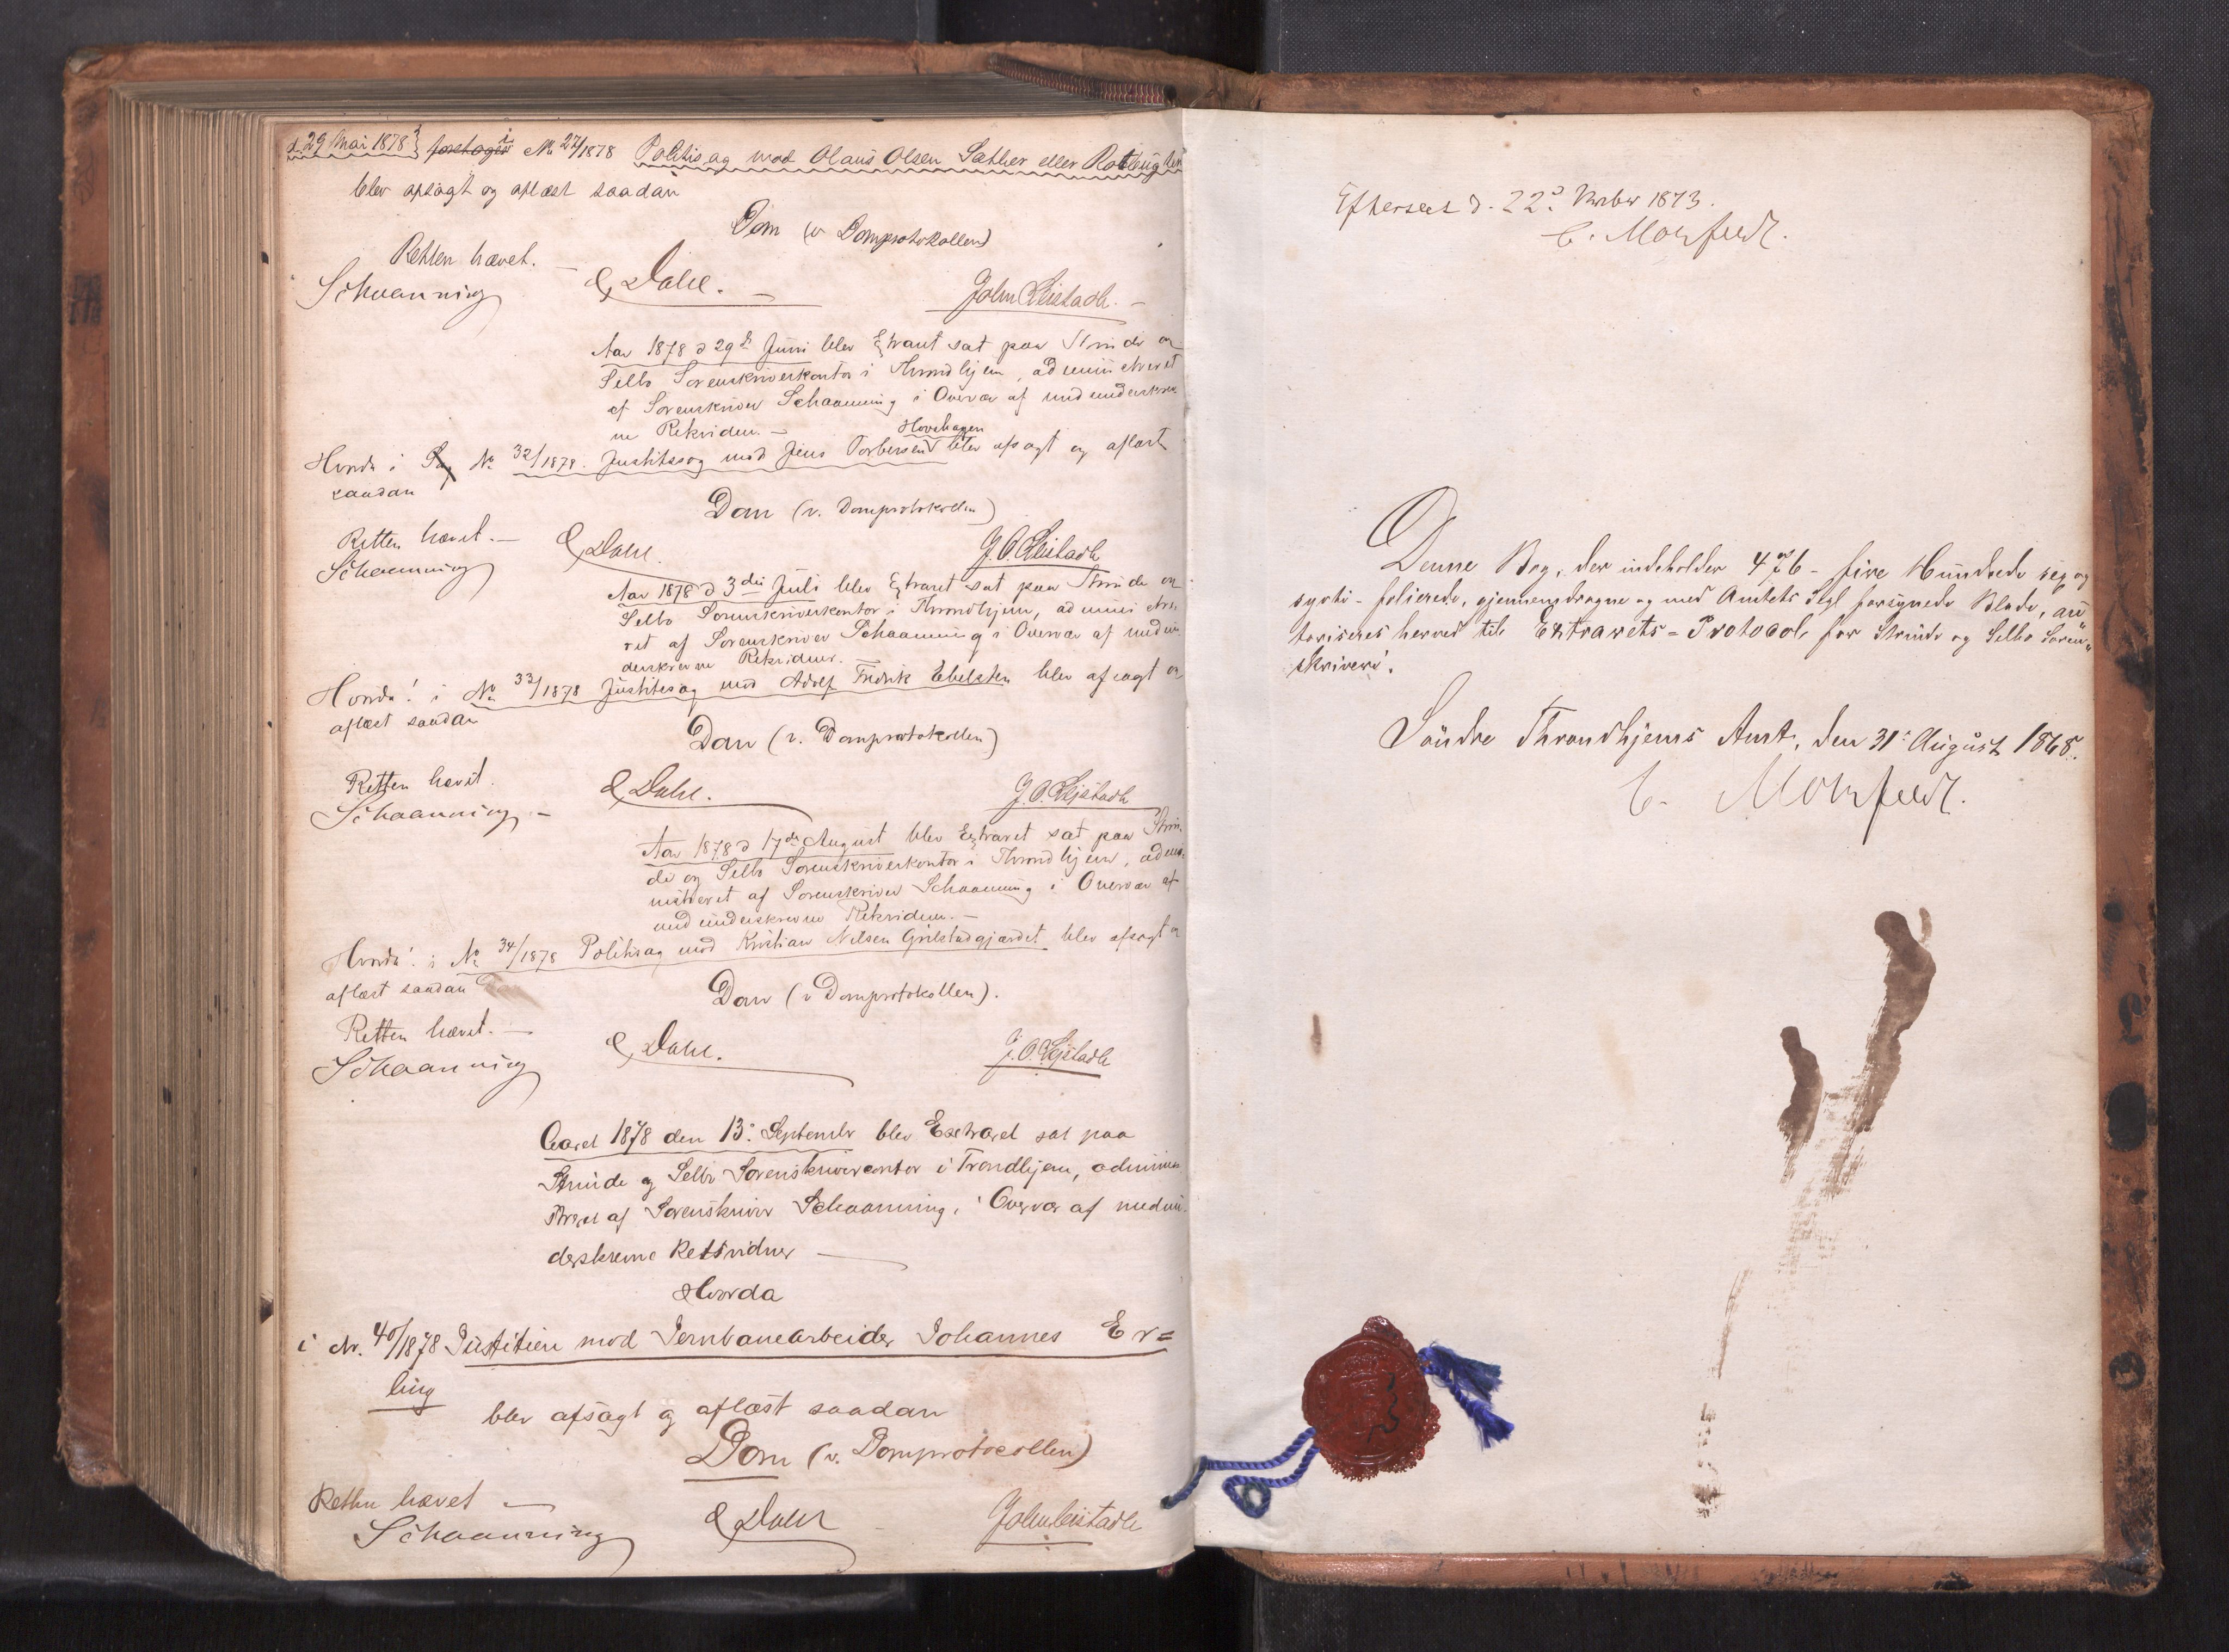 d. 29 Mai 1878 foretoges i No 27/1878 Politisag mod Olaus Olsen Sæther eller
blev afsagt og aflæst saadan
Dom (v Domprotokollen)
Retten hævet.
Schaanning E Dahl. John Leistadh.
Aar 1878 d 29de Juni blev Extraret sat paa Strinde og
Selbo Sorenskriverkontor i Throndhjem, administreret
af Sorenskriver Schaanning i Overvær af medunderskrev
ne Retsvidner. Hovshagen
Hvorda i Sag No 32/1878. Justitssag mod Jens Torbersen blev afsagt og aflæst
saadan
Dom (v. Domprotokollen)
Retten hævet.
Schaanning E Dahl. J. O. Leistadh
Aar 1878 d 3die Juli blev Extraret sat paa Strinde og
Selbo Sorenskriverkontor i Throndhjem, administre
ret af Sorenskriver Schaanning i Overvær af medun
derskrevne Retsvidner.
Hvorda! i No 33/1878 Justitssag mod Adolf Fredrik Ebelsten blev afsagt og
aflæst saadan
Dom (v. Domprotokollen)
Retten hævet.
Schaanning E Dahl. J. O. Leistadh
Aar 1878 d 17de August blev Extraret sat paa Strin
de og Selbo Sorenskriverkontor i Throndhjem, admi
nistreret af Sorenskriver Schaanning i Overvær af
medunderskrevne Retsvidner.
Hvorda! i No 34/1878 Politisag mod Kristian Nilsen Grilstadgjærdet blev afsagt og
aflæst saadan
Dom (v Domprotokollen).
Retten hævet.
Schaanning E Dahl. J. O. Leistadh
Aaret 1878 den 13. Septembr blev Extraret sat paa
Strinde og Selbo Sorenskrivercontor i Trondhjem, adminin
streret af Sorenskriver Schaanning, i Overvær af medun
derskrevne Retsvidner
Hvorda
i Nr. 40/1878 Justitien mod Jernbanearbeider Johannes Er=
ling
blev afsagt og aflæst saadan
Dom (v. Domprotocollen)
Retten hævet
Schaanning E Dahl John Leistadh
Efterseet d. 22d 1873.
C. Motzfeldt.
Denne Bog, der indeholder 476 - fire Hundrede sex og
sytti - folierede, gjennemdragne og med Amtets Segl forsynede Blade, au
toriseres herved til Extrarets=Protocol for Strinde og Selbo Soren„
skriveri.
Söndre Throndhjems Amt, den 31. August 1868.
C. Motzfeldt.